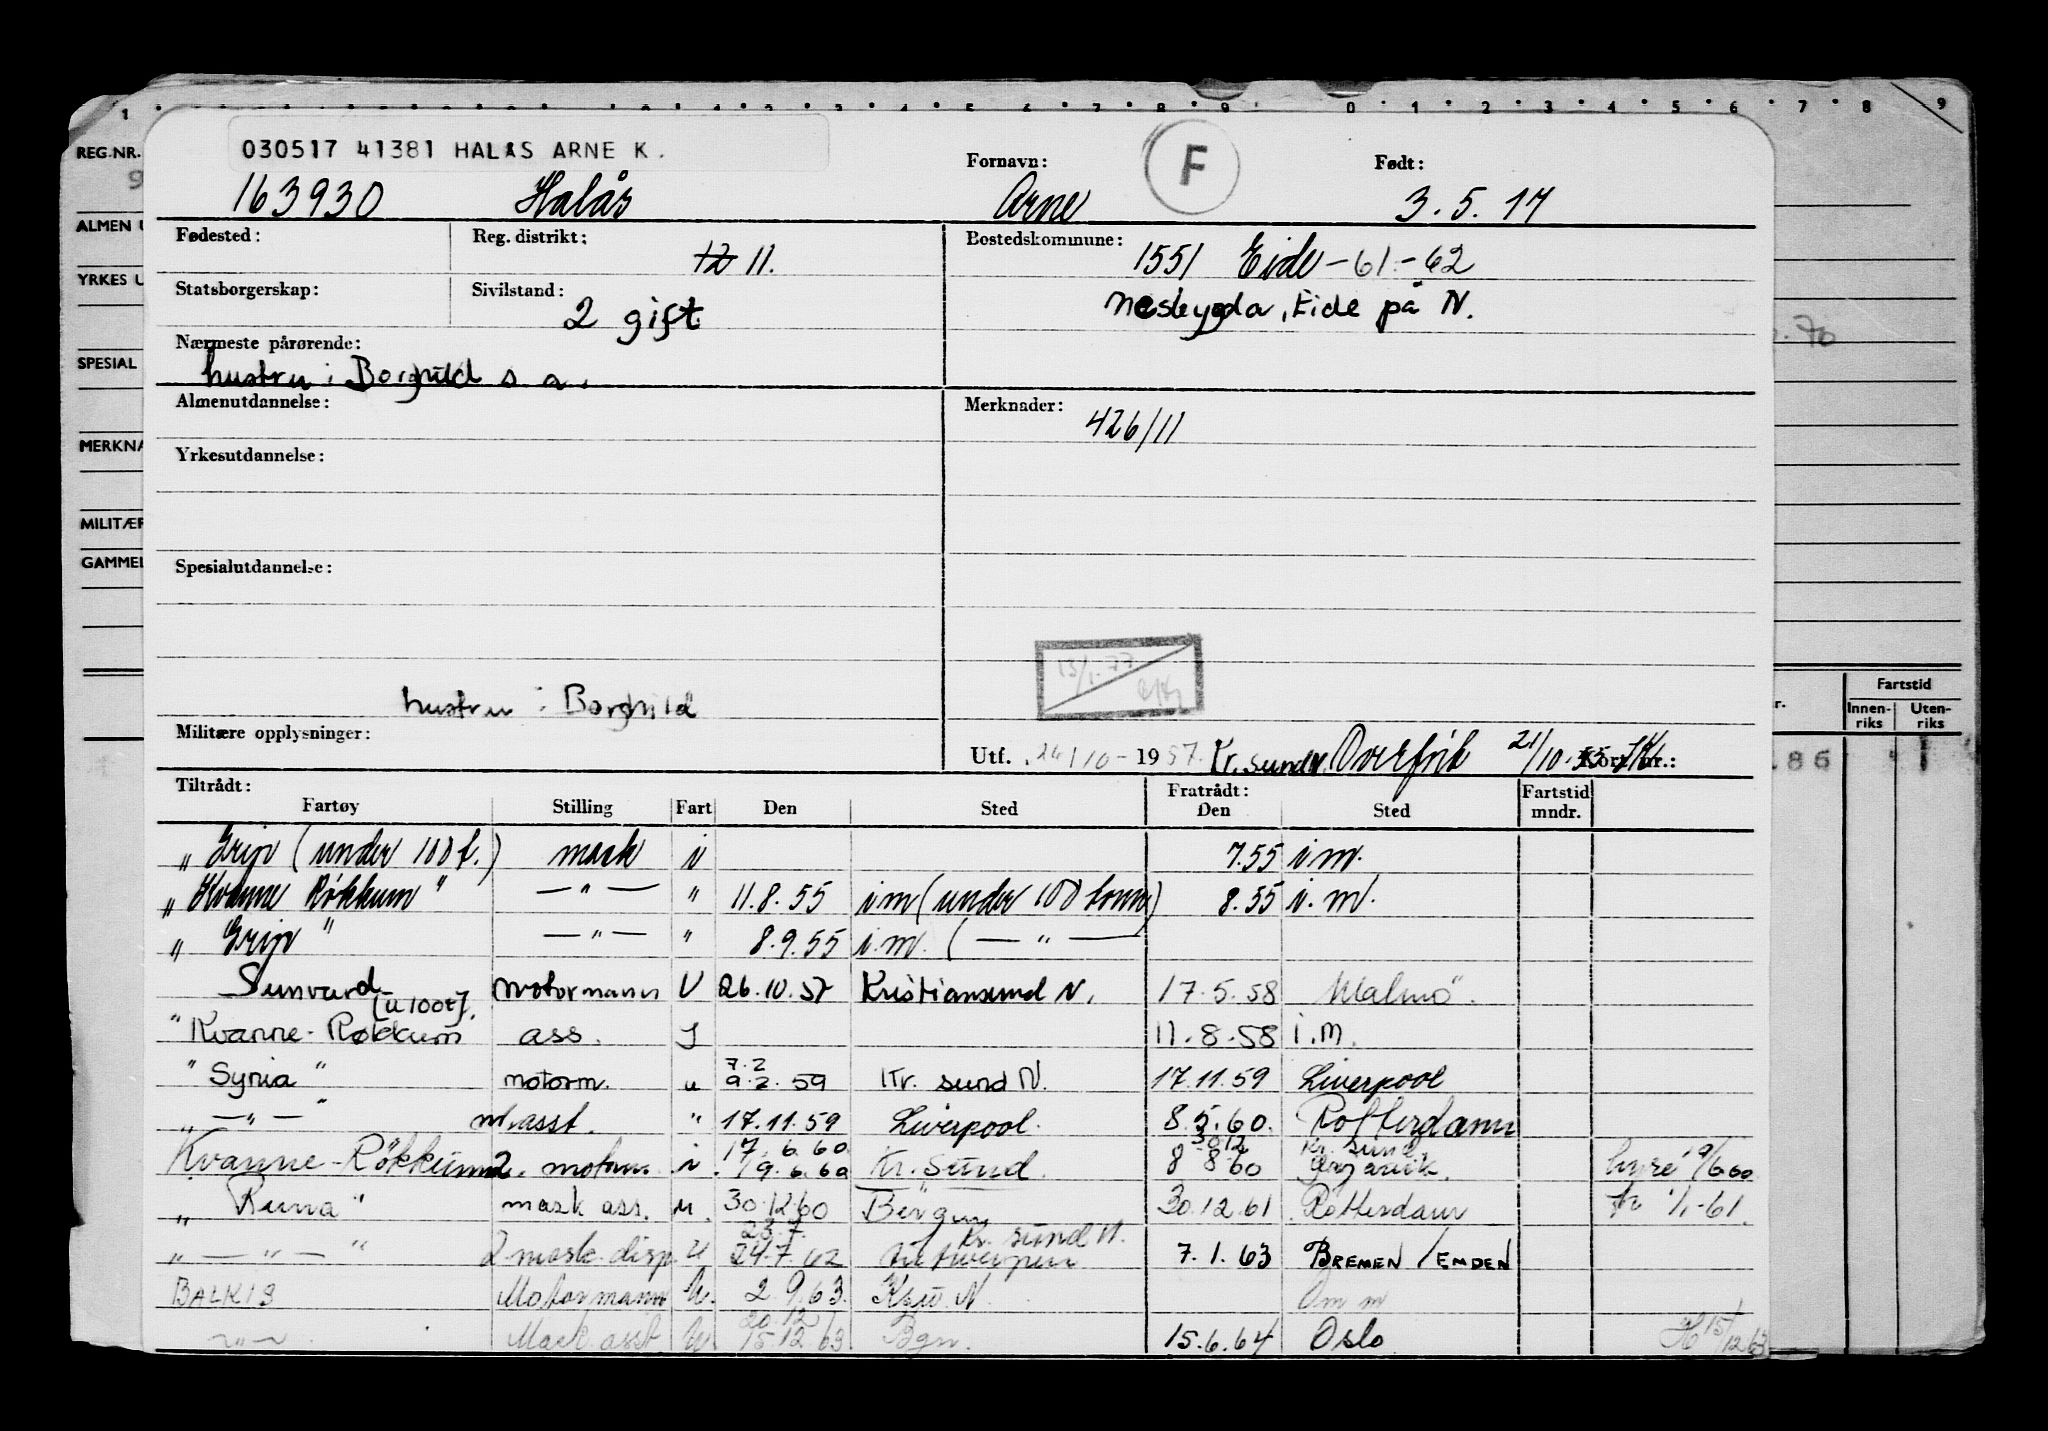 1 2 3 4 5 6 7 8 9 0 1 2 3 4 5 6 7 8 9
REG.NR.
ALMEN U
YRKES U
SPESIAL
MERKNA
MILITÆR
GAMMEL
030517 41381 HALÅS ARNE K.
Fornavn: F Født:
163930 Halås Arne 3.5.17
Fødested: Reg. distrikt: 12 11. Bostedskommune: 1551 Eide -61-62
Statsborgerskap: Sivilstand: 2 gift Nesbygda, Eide på N.
Nærmeste pårørende:
hustru: Borghild s a.
Almenutdannelse: Merknader: 426/11
Yrkesutdannelse:
Spesialutdannelse:
13/1-77
hustru: Borghild
Militære opplysninger: Utf. 24/10-1957. Kr.sund N. Overfört 21/10-55 Kort nr.:
Fartstid
Innen-riks Uten-riks
.86 1
Tiltrådt: Fratrådt:
Fartøy Stilling Fart Den Sted Den Sted Fartstid mndr.
"Grip (under 100 t.) mask i 7.55 i m.
"Kvanne Røkkum" —"— " 11.8.55 i m (under 100 tonn) 8.55 i. m.
"Grip" —"— " 8.9.55 i.m. (—"—
Sunvard motormann U 26.10.57 Kristiansund N. 17.5.58 Malmö.
(u 100t).
"Kvanne-Røkkum ass. I 11.8.58 i.m.
"Syria" motorm. u 7.2 9.2.59 Kr. sund N. 17.11.59 Liverpool
"—"—" m.asst. " 17.11.59 Liverpool. 8.5.60. Rotterdam
Kvanne-Røkkum 2. motorm. i. 17.6.60 19.6.60 Kr. Sund. 30 12 8 8 60 Kr. sund 9/6 60
"Runa" mask ass. u. 30.12.60 Bergen 30.12.61 Rotterdam 1/1-61.
"—"—" 2 mask. disp. U 23.7. 24.7.62 Kr. sund N. Antwerpen 7.1.63 BREMEN/EMDEN
BALKIS Motormann U. 2.9.63. Ksu N. Om m
—"— Mask. asst. U. 20.12 15.12.63 Bgn. 15.6.64 Oslo 15/12 63